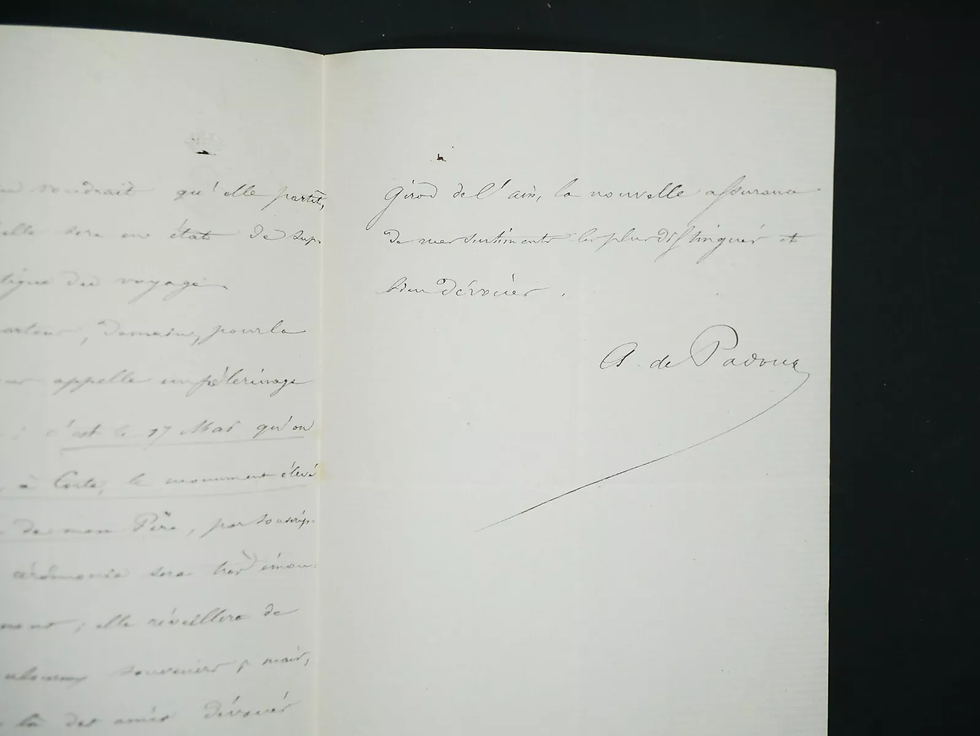 voudrait qu'elle partit,
elle sera en état de sup-
du voyage.
demain, pour la
appelle un pèlerinage
c'est le 17 Mai qu'on
à Corte, le monument élevé
de mon Père, par souscrip-
cérémonie sera très émou-
; elle réveillera de
souvenirs ; mais,
là des amis dévoués
Girod de l'ain, la nouvelle assurance
de mes sentiments les plus distingués et
bien dévoués.
A. de Padoue